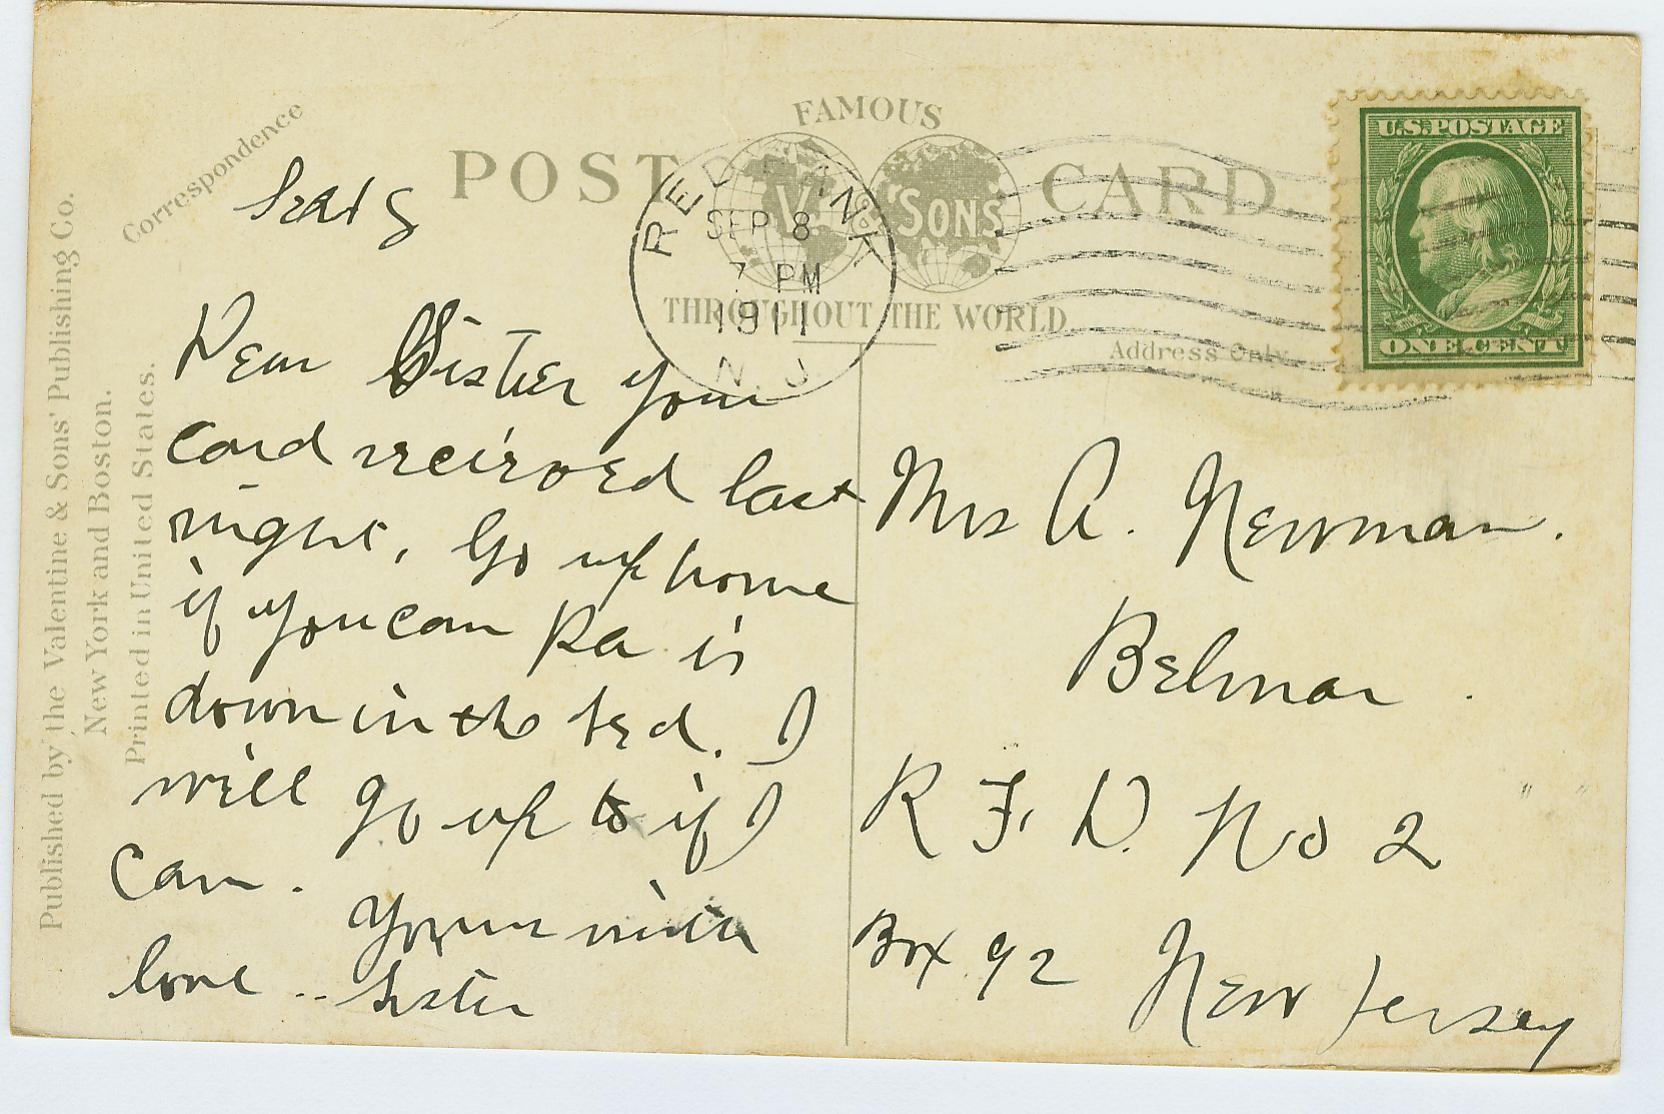 Correspondence
FAMOUS
POST CARD.
V. & SONS
THROUGHOUT THE WORLD.
Address Only.
RED BANK
SEP 8
7 PM
1911
N.J.
U.S. POSTAGE
ONE CENT
Published by the Valentine & Sons' Publishing Co.
New York and Boston.
Printed in United States.
Sept 8
Dear Sister your
card recieved last
night, Go up home
if you can Pa is
down in the bed. I
will go up to if I
can.
Yours with
love .. Sister
Mrs A. Newman.
Belmar.
R F. D. No 2
Box 92 New Jersey